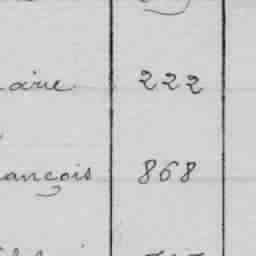 aire 222
ançois 868